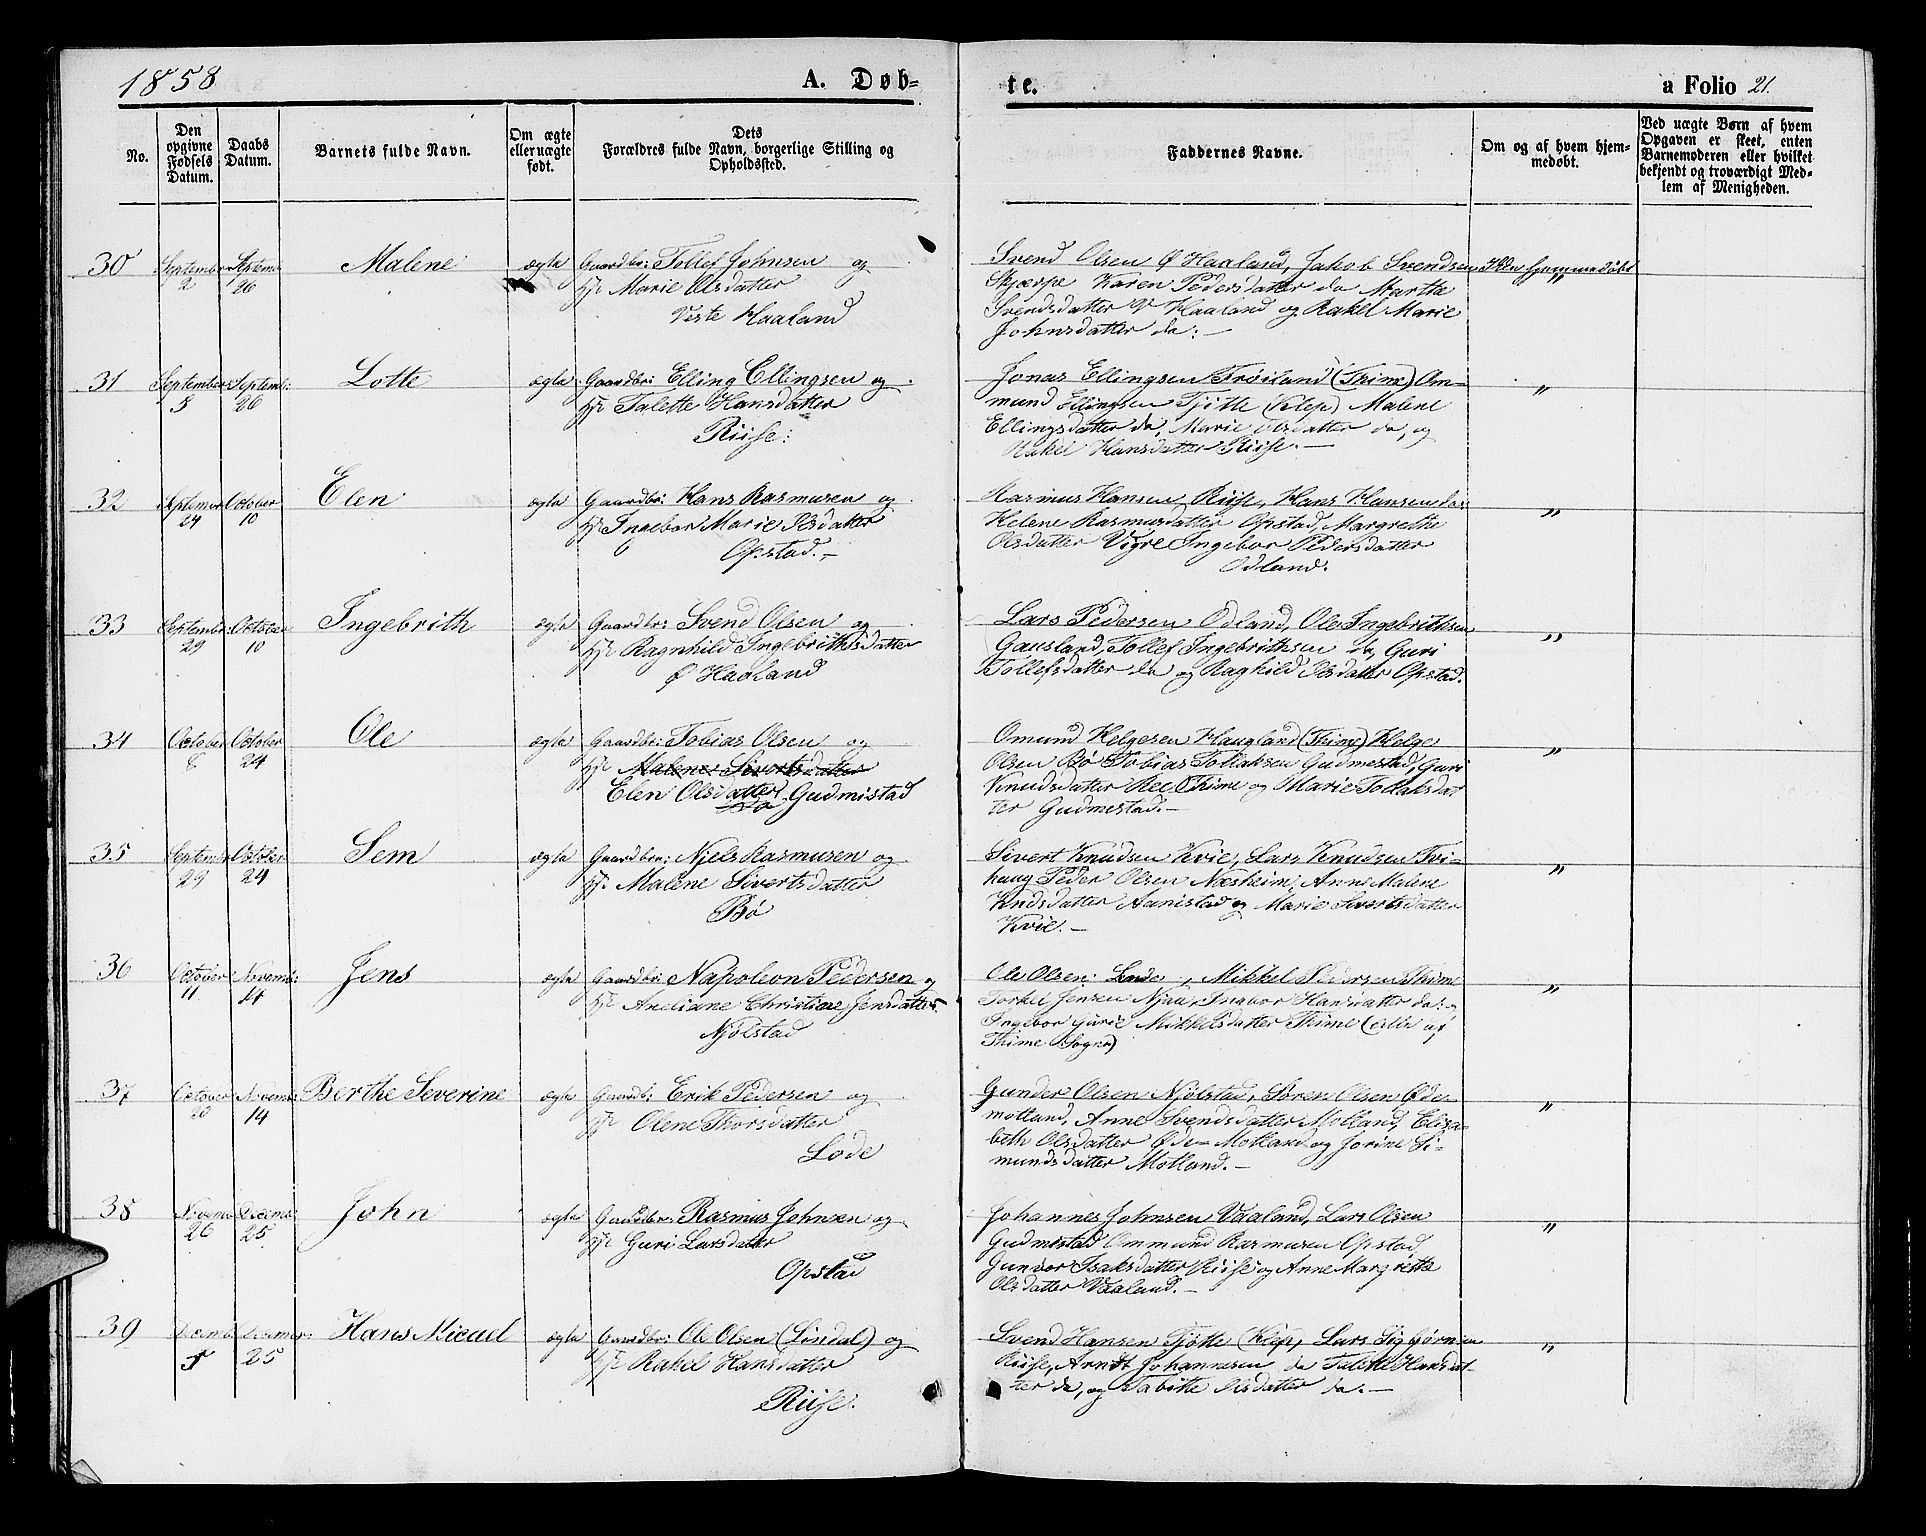 1858
A. Døb-
te.
a Folio 21.
No.
Den
opgivne
Fødsels
Datum.
Daabs
Datum.
Barnets fulde Navn.
Om ægte
eller uægte
født.
Dets
Forældres fulde Navn, borgerlige Stilling og
Opholdssted.
Faddernes Navne.
Om og af hvem hjem-
medøbt.
Ved uægte Børn af hvem
Opgaven er skeet, enten
Barnemoderen eller hvilket
bekjendt og troværdigt Med-
lem af Menigheden.
30 September 2 Septemb 26 Malene ægte Gaardbr: Tollef Johnsen og
hst Marie Olsdatter
Vestre Haaland
Svend Olsen Ø Haaland, Jakob Svendsen
Skjærpe Karen Pedersdatter do Marthe
Svendsdatter V Haaland og Rakel Marie
Johnsdatter do: –
Ikke hjemmedøbt
31 September 3 Septemb: 26 Lotte ægte Gaardbr: Elling Ellingsen og
hst Talette Hansdatter
Riise:
Jonas Ellingsen Frøiland (Thime) Om-
mund Ellingsen Tjøtte (Klep) Malene
Ellingsdatter do, Marie Olsdatter do, og
Rakel Hansdatter Riise. –
"
32 September 24 October 10 Elen ægte Gaardbr: Hans Rasmusen og
hst Ingebor Marie Olsdatter
Opstad. –
Rasmus Hansen Riise, Hans Hansen do:
Helene Rasmusdatter Opstad, Margrethe
Olsdatter Vigre Ingebor Pedersdatter
Odland.
"
33 Septembr: 29 October 10 Ingebrith ægte Gaardbr: Svend Olsen og
hst Ragnhild Ingebrithsdatter
Ø Haaland
Lars Pedersen Odland, Ole Ingebrithsen
Gausland, Tollef Ingebrithsen do, Guri
Tollefsdatter do og Raghild Olsdatter Opstad.
"
34 October 8 October 24 Ole ægte Gaardbr: Tobias Olsen og
hst Malene Sivertsdatter
Elen Olsdatter Gudmestad
Bø
Omund Helgesen Haugland (Thime) Helge
Olsen Bø Tobias Tollaksen Gudmestad, Guri
Knudsdatter Ree Thime og Marie Tollaksdat
ter Gudmestad. –
"
35 September 29 October 24 Sem ægte Gaardbr: Njels Rasmusen og
hst Malene Sivertsdatter
Bø
Sivert Knudsen Kvie, Lars Knudsen Tvi-
haug Peder Olsen Næsheim, Anne Malene
Kndsdatter Aanistad og Marie Sivertsdatter
Kvie. –
"
36 October 11 Novemb: 14 Jens ægte Gaardbr: Napoleon Pedersen og
hst Aneliane Christine Jensdatter
Njølstad
Ole Olsen: Lende, Mikkel Pedersen Thime
Torkel Jensen Njaa, Ingebor Hansdatter do: og
Ingebor Gurie Mikkelsdatter Thime (alle af
Thime Sogn)
"
37 October 20 Novemb: 14 Berthe Severine ægte Gaardb: Erik Pedersen og
hst Olene Thorsdatter
Lode
Gunder Olsen Njølstad, Søren Olsen Øde-
motland, Anne Svendsdatter Motland, Elisa-
beth Olsdatter Øde-Motland og Jorine Si-
mundsdatter Motland. –
"
38 Novemb 26 Decemb: 25 John ægte Gaardbr: Rasmus Johnsen og
hst Guri Larsdatter
Opstad
Johannes Johnsen Vaaland, Lars Olsen
Gudmestad Ommund Rasmusen Opstad
Gunvor Isaksdatter Riise og Anne Margrethe
Olsdatter Vaaland. –
"
39 Decemb 5 Decembr: 25 Hans Micael ægte Gaardbr: Ole Olsen (Lindal) og
hst Rakel Hansdatter
Riise.
Svend Hansen Tjøtte (Klep, Lars Sigbjørnsen
Riise, Arndt Johannesen do Talette Hansdat-
ter do, og Tabitte Olsdatter do. –
"